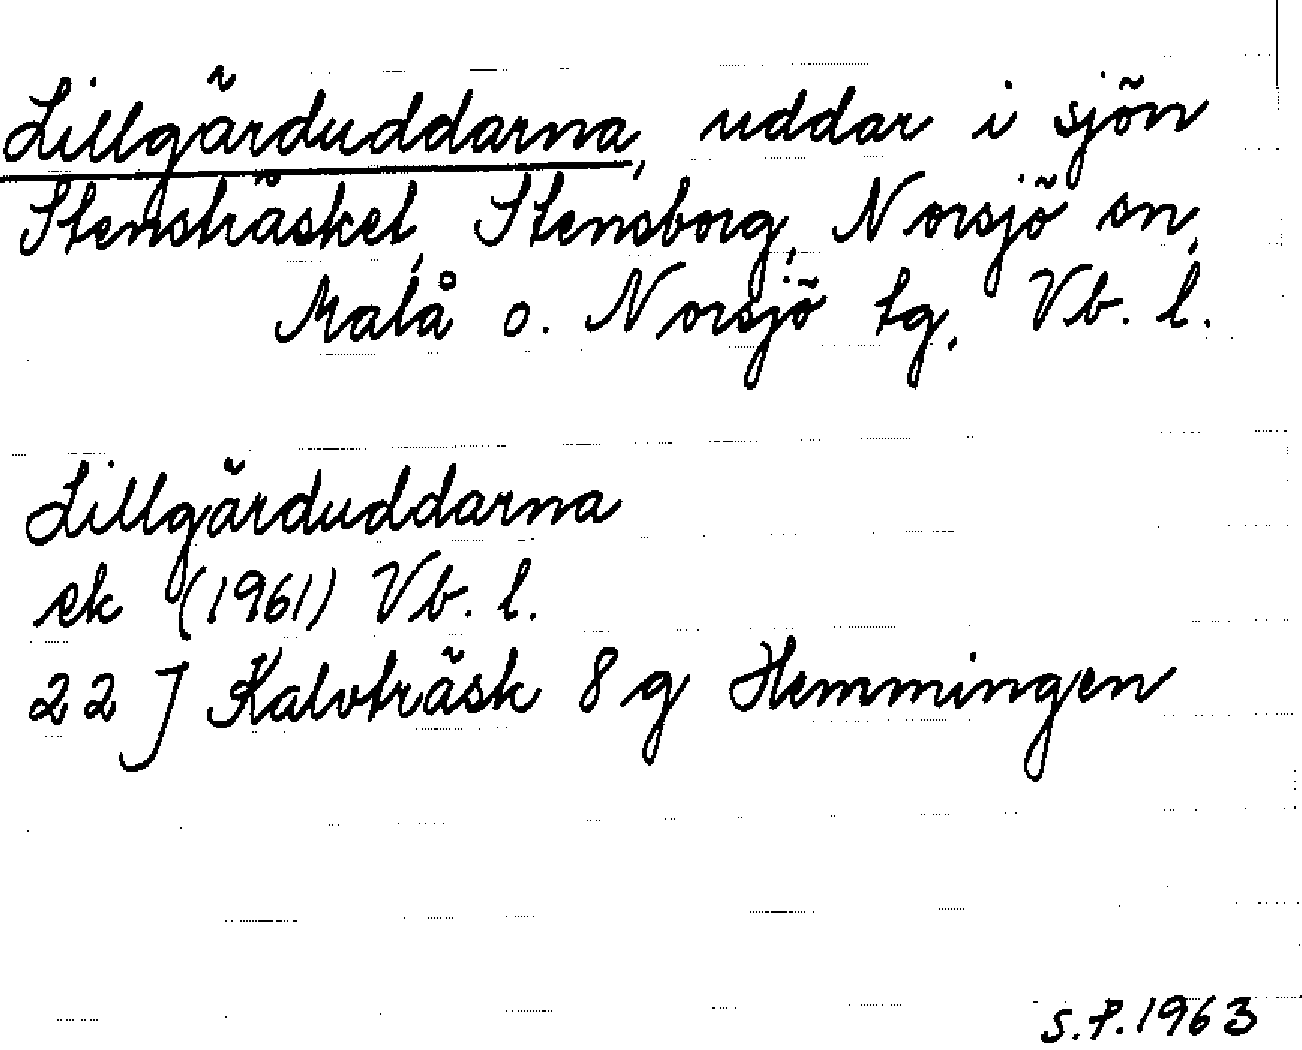 Lillgärduddarna, uddar i sjön
Stensträsket, Stensborg, Norsjö sn,
Malå o. Norsjö tg. Vb. l.
Lillgärduddarna
ek (1961) Vb. l.
22 J Kalvträsk 8 g Hemmingen
S.P. 1963